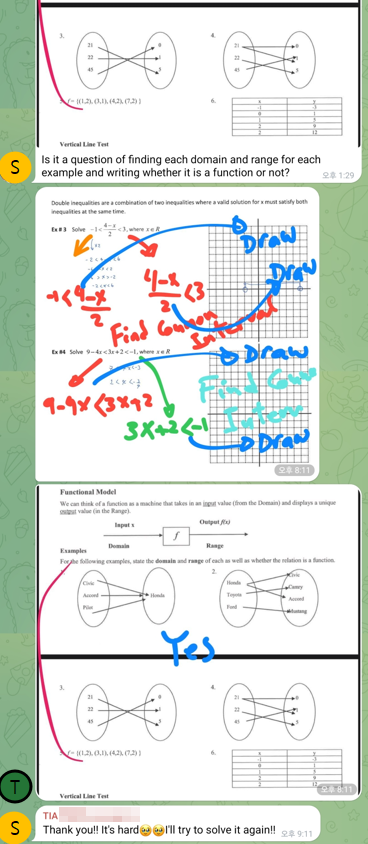 3.
4.
21
0
22
1
45
5
21
0
22
1
45
5
5. f = {(1,2), (3,1), (4,2), (7,2)}
6.
x y
-1 -3
0 1
1 5
2 9
2 12
Vertical Line Test
S
Is it a question of finding each domain and range for each
example and writing whether it is a function or not?
오후 1:29
Double inequalities are a combination of two inequalities where a valid solution for x must satisfy both
inequalities at the same time.
Ex # 3 Solve -1 < 4-x/2 < 3, where x ∈ R
Draw
Draw
-1 < 4-x/2
4-x/2 < 3
Find Common
Interval
Ex #4 Solve 9-4x<3x+2<-1, where x ∈ R
Draw
9-4x<3x+2
Find Com
Interv
3x+2<-1
Draw
오후 8:11
Functional Model
We can think of a function as a machine that takes in an input value (from the Domain) and displays a unique
output value (in the Range).
Input x
Output f(x)
f
Domain
Range
Examples
For the following examples, state the domain and range of each as well as whether the relation is a function.
2.
Civic
Accord
Pilot
Honda
Honda
Toyota
Ford
Civic
Camry
Accord
Mustang
Yes
3.
4.
21
0
22
1
45
5
21
0
22
1
45
5
5. f = {(1,2), (3,1), (4,2), (7,2)}
6.
x y
-1 -3
0 1
1 5
2 9
2 12
오후 8:11
T
Vertical Line Test
TIA
S
Thank you!! It's hard🥺🥺I'll try to solve it again!!
오후 9:11